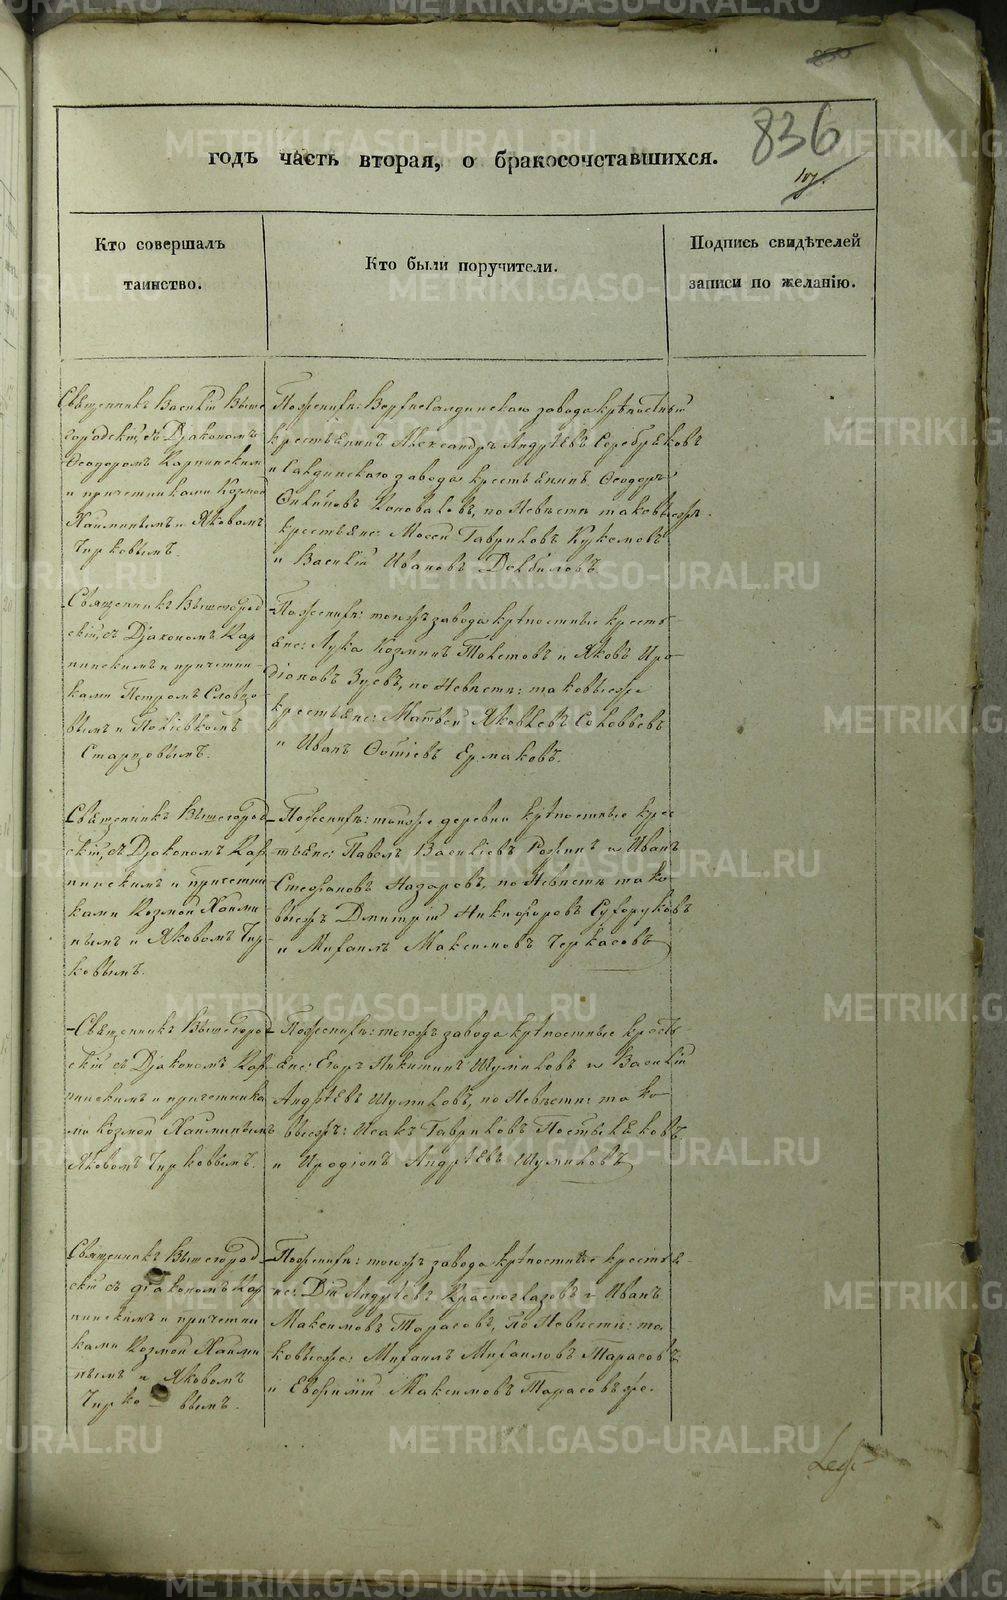 836
годъ часть вторая, о бракосочетавшихся.
Кто совершалъ
таинство.
Кто были поручители.
Подпись свидѣтелей
записи по желанію.
Священникъ Василій Выше
городскій, съ Діакономъ
Ѳеодоромъ Карпинскимъ
и причетниками Козмой
и Яковомъ
Чирковымъ.
По женихѣ: Верхнесалдинскаго завода крѣпостный
крестьянинъ Александръ Андрѣевъ Серебряковъ
и Салдинскаго завода крестьянинъ Ѳеодоръ
Коноваловъ, по невѣстѣ таковыежъ
крестьяне: Моѵсей Гавриловъ
и Василій Ивановъ
Священникъ Вышегород
скій, съ Діакономъ Кар
пинскимъ и причетни-
ками Петромъ Словцо
вымъ и
Старцовымъ.
По женихѣ: тогожъ завода крѣпостные кресть
яне: Лука Козминъ и Яковъ Иро-
діоновъ Зуевъ, по невѣстѣ: таковыеже
крестьяне: Матвей Яковлевъ Соловьевъ
и Иванъ Ермаковъ.
Священникъ Вышегород
скій, съ Діакономъ Кар
пинскимъ и причетни
ками Козмой
и Яковомъ Чир-
ковымъ.
По женихѣ: тоюже деревни крѣпостные крес
тьяне: Павелъ Василіевъ и Иванъ
Стефановъ Назаровъ, по невѣстѣ тако
выежъ Дмитрій Никифоровъ Сухоруковъ
и Михаилъ Максимовъ Черкасовъ
Священникъ Вышегород
скій съ Діакономъ Кар
пинскимъ и причетника
ми Козмой
Яковомъ Чирковымъ.
По женихѣ: тогожъ завода крѣпостные кресть
яне: Егоръ Никитинъ Шумиловъ и Василій
Андрѣевъ Шумиловъ, по невѣстѣ: тако
выежъ: Исакъ Гавриловъ Постыляковъ
и Иродіонъ Андрѣевъ Шумиловъ
Священникъ Вышегород
скій съ діакономъ Кар
пинскимъ и причетни
ками Козмой
и Яковомъ
Чирко вымъ.
По женихѣ: тогожъ завода крѣпостные крестья-
не: Дій Андрѣевъ Красноглазовъ и Иванъ
Максимовъ Тарасовъ, по невѣстѣ: та
ковыеже: Михаилъ Михаиловъ Тарасовъ
и Евфимій Максимовъ Тарасовъже.
METRIKI.GASO-URAL.RU